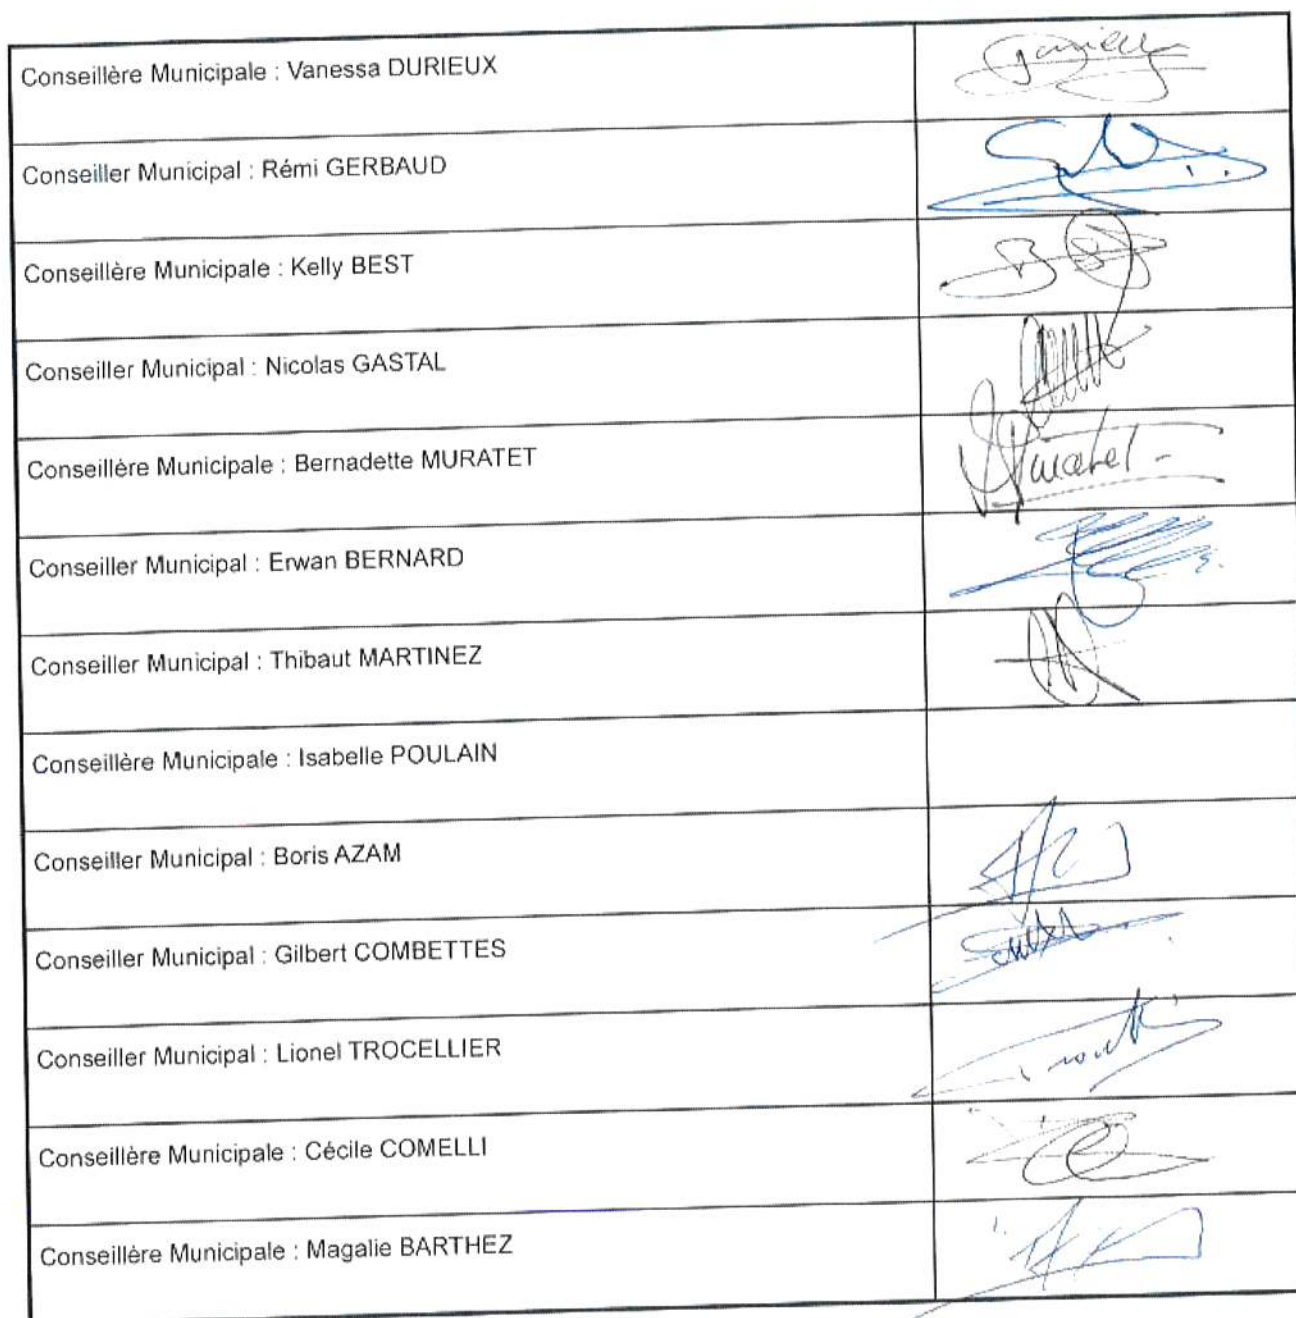 Conseillère Municipale : Vanessa DURIEUX
Conseiller Municipal : Rémi GERBAUD
Conseillère Municipale : Kelly BEST
Conseiller Municipal : Nicolas GASTAL
Conseillère Municipale : Bernadette MURATET
Conseiller Municipal : Erwan BERNARD
Conseiller Municipal : Thibaut MARTINEZ
Conseillère Municipale : Isabelle POULAIN
Conseiller Municipal : Boris AZAM
Conseiller Municipal : Gilbert COMBETTES
Conseiller Municipal : Lionel TROCELLIER
Conseillère Municipale : Cécile COMELLI
Conseillère Municipale : Magalie BARTHEZ